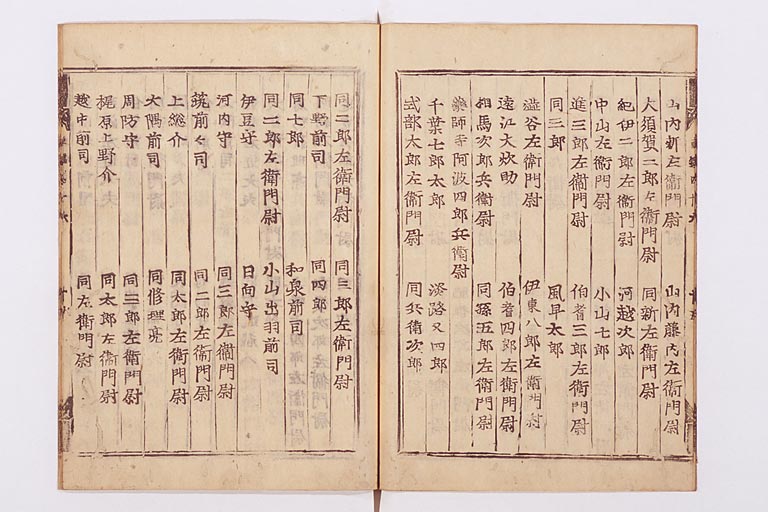 山内新左衛門尉　山内藤内左衛門尉
大須賀二郎左衛門尉　同新左衛門尉
紀伊二郎左衛門尉　河越次郎
中山左衛門尉　小山七郎
進三郎左衛門尉　伯耆三郎左衛門尉
同三郎　風早太郎
澁谷左衛門尉　伊東八郎左衛門尉
遠江大炊助　伯耆四郎左衛門尉
相馬次郎兵衛尉　同孫五郎左衛門尉
藥師寺阿波四郎兵衛尉
千葉七郎太郎　淡路又四郎
式部太郎左衛門尉　同兵衛次郎
同二郎左衛門尉　同三郎左衛門尉
下野前司　同四郎
同七郎　和泉前司
同二郎左衛門尉　小山出羽前司
伊豆守　日向守
河内守　同三郎左衛門尉
筑前々司　同二郎左衛門尉
上総介　同太郎左衛門尉
大隅前司　同修理亮
周防守　同三郎左衛門尉
梶原上野介　同太郎左衛門尉
越中前司　同左衛門尉